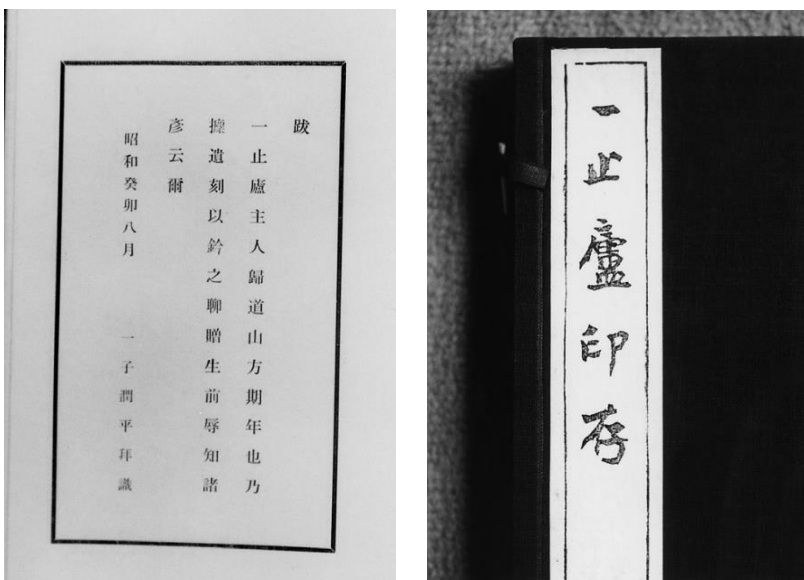 跋
一止廬主人歸道山方期年也乃
擥遺刻以鈐之聊贈生前辱知諸
彥云爾
昭和癸卯八月　一子潤平拜識
一止廬印存